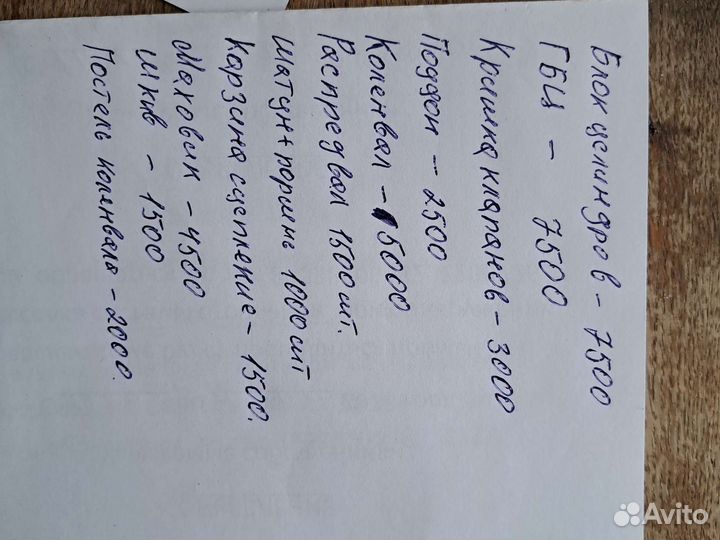 Блок целиндров - 7500
ГБЦ - 7500
Кришка клапанов - 3000
Поддон - 2500
Коленвал - 5000
Распредвал 1500шт.
Шатун+поршнь 1000шт
Карзина сцепление - 1500.
Маховик - 4500
Шкив - 1500
Постель коленвала - 2000.
Avito